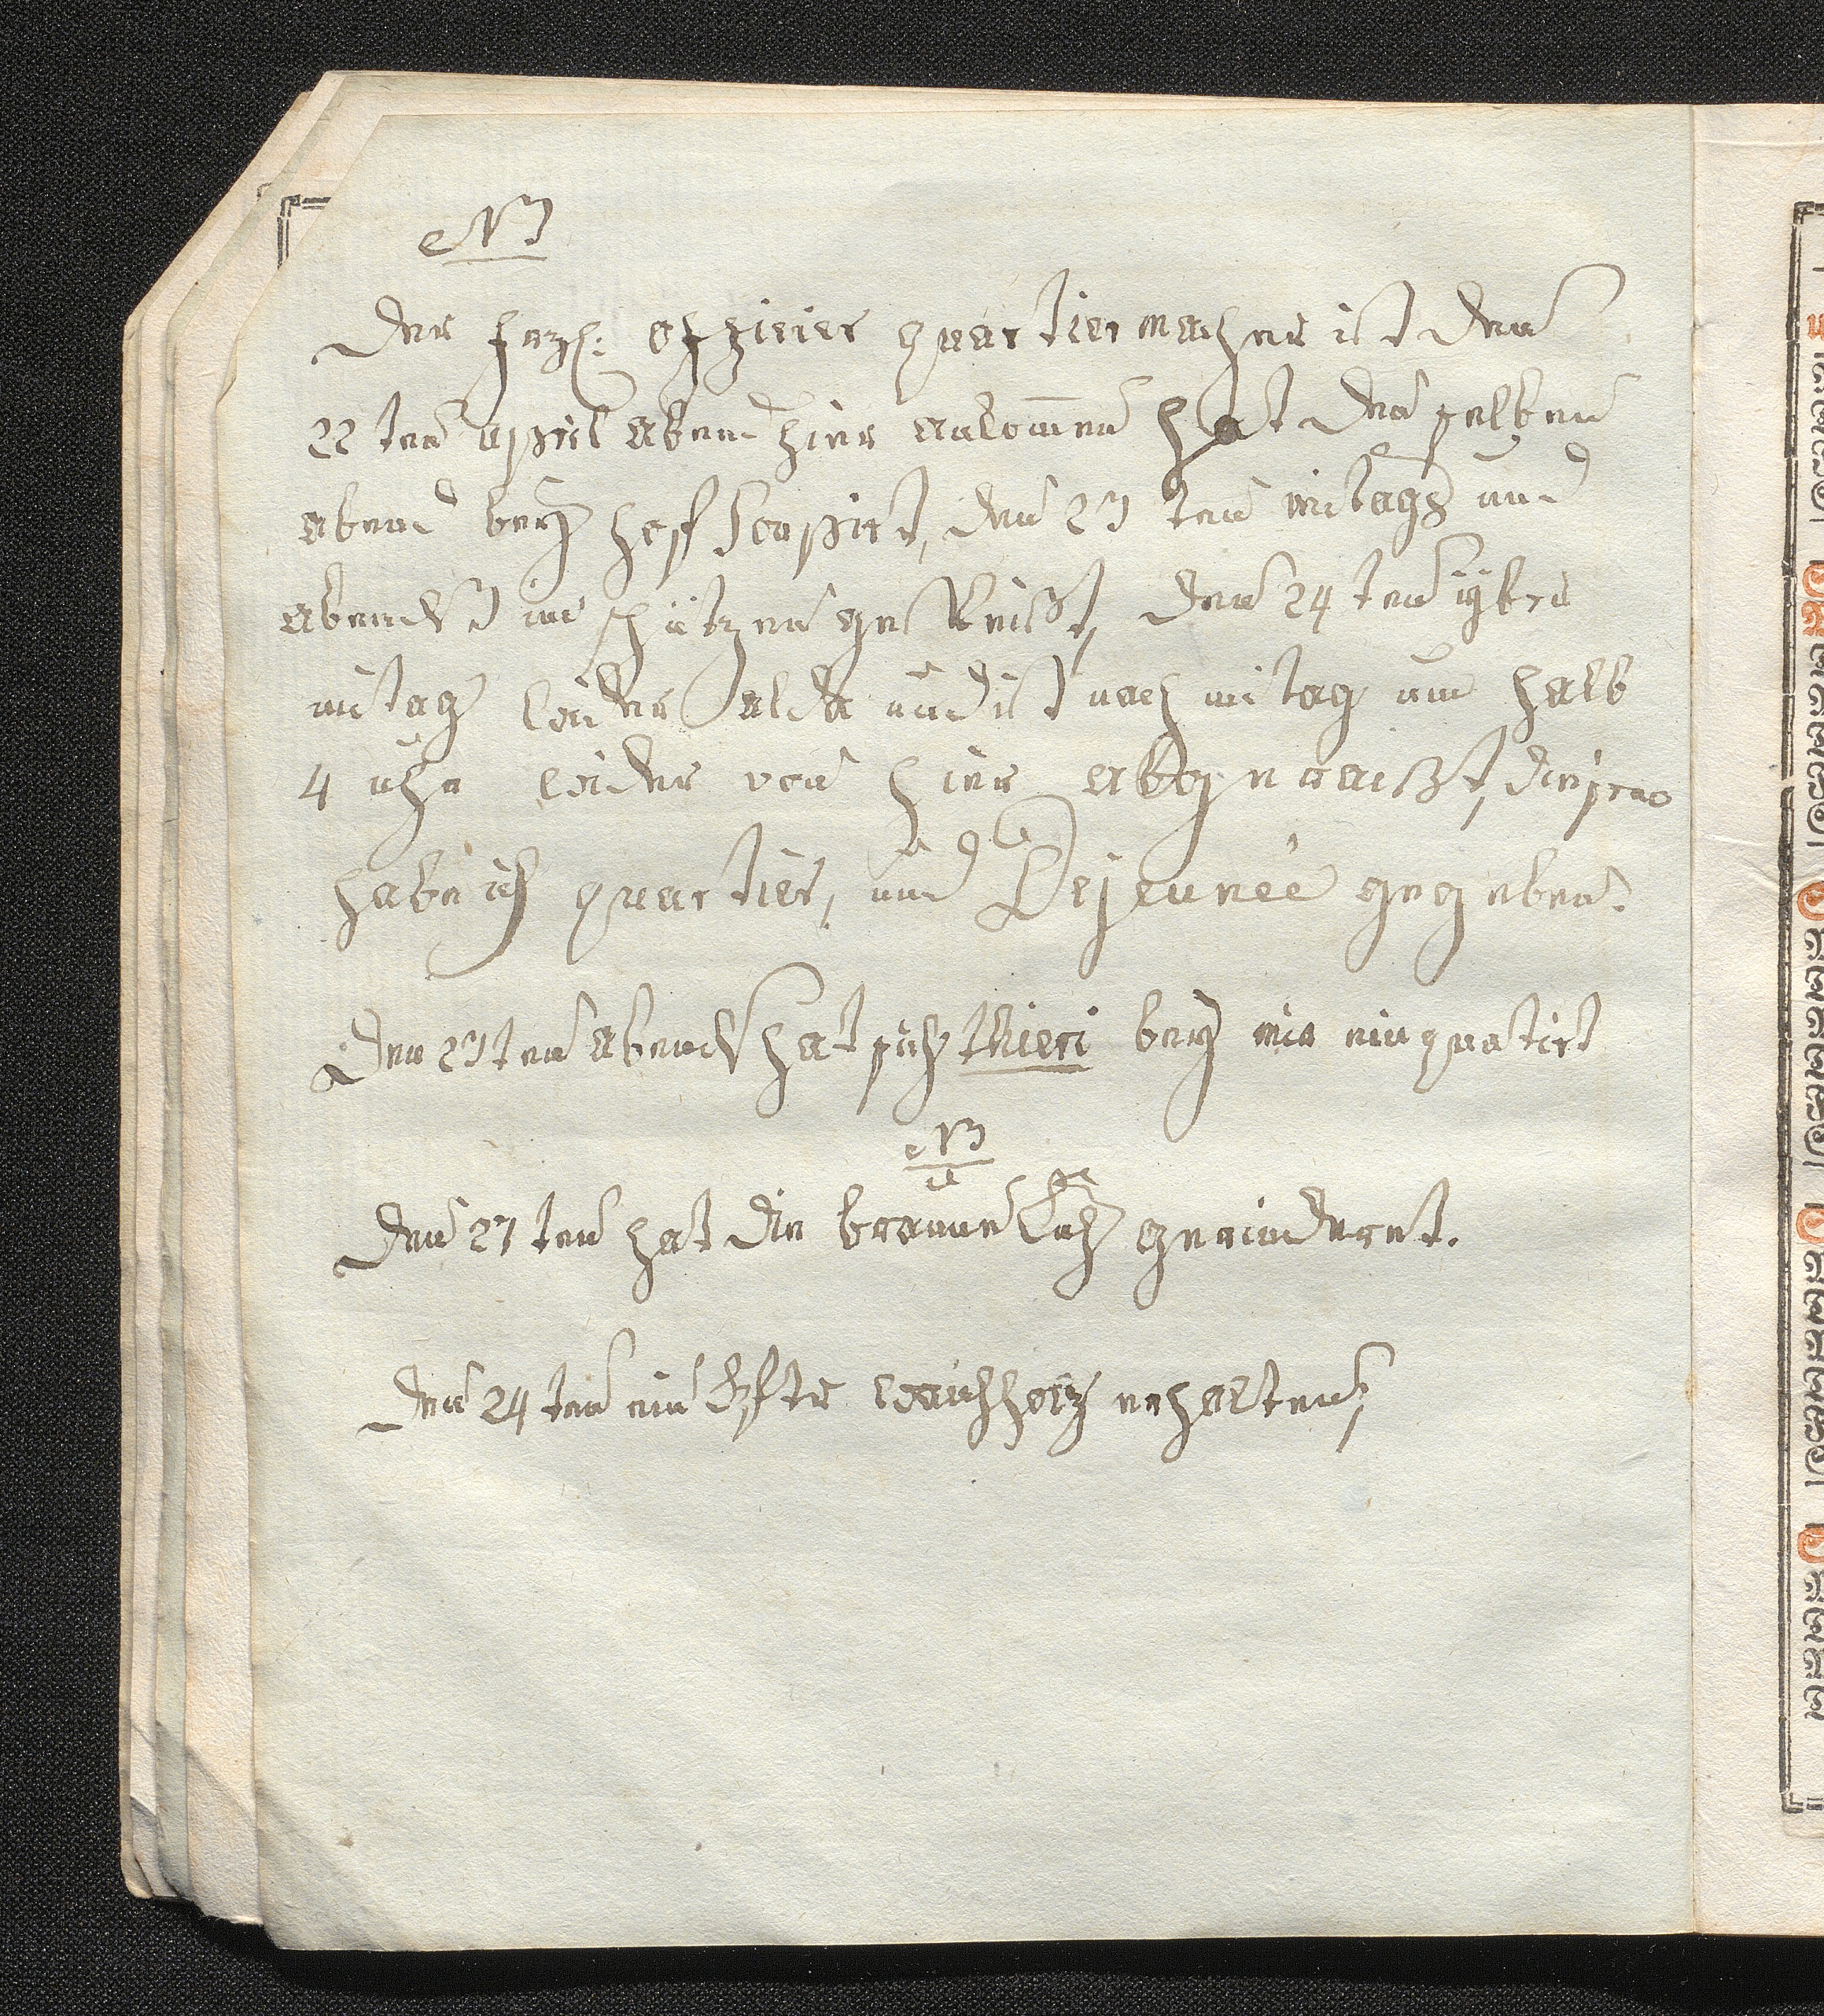 NB
Der frzh: offizier quartiermacher ist den
22 ten april abend hier ankomen hat den selben
abend bey hoff soupirt, den 23 ten mitags und
abends im schützen gespeisst, den 24 ten
mitag wider alda und ist nach mitag um halb
4 uhr wider von hier abgeraisst,
habe ich quartier, und Dejeuneé gegeben.
Den 23 ten abends hat sich thieri bey mir einquatirt
NB
Den 27 ten hat die braune Kuh gerinderet.
Den 24 ten ein waichholz erhalten;